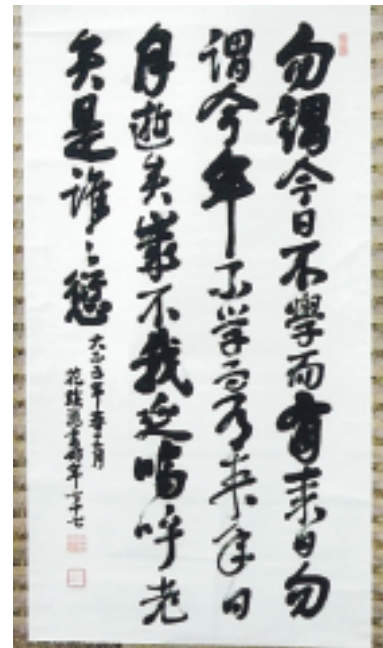 勿謂今日不學而有来日勿
謂今年不学而有来年日
月逝矣歳不我延嗚呼老
矣是誰之愆
大正五年春三月
花蹊書時年七十七